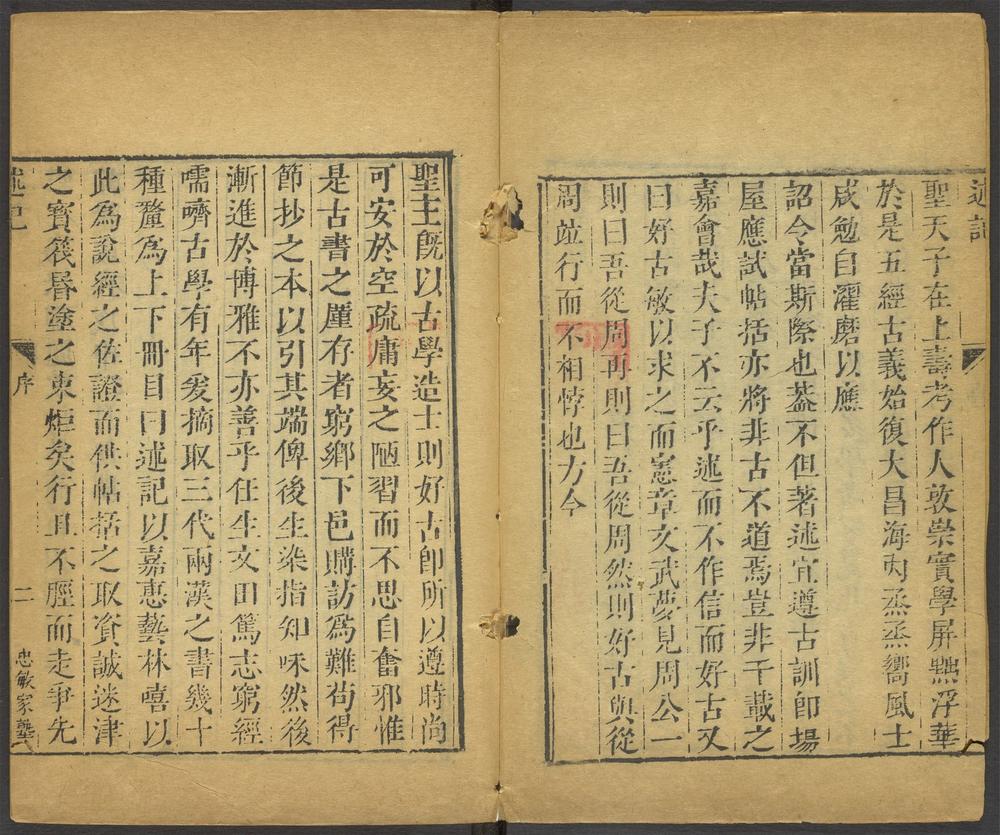 述記
聖天子在上壽考作人敦崇實學屏黜浮華
於是五經古義始復大昌海內烝烝嚮風士
咸勉自濯磨以應
詔令當斯際也葢不但著述宜遵古訓即場
屋應試帖括亦將非古不道焉豈非千載之
嘉會哉夫子不云乎述而不作信而好古又
曰好古敏以求之而憲章文武夢見周公一
則曰吾從周再則曰吾從周然則好古與從
周竝行而不相悖也方今
聖主旣以古學造士則好古卽所以遵時尚
可安於空疏庸妄之陋習而不思自奮邪惟
是古書之廑存者窮鄉下邑購訪爲難苟得
節抄之本以引其端俾後生染指知味然後
漸進於博雅不亦善乎任生文田篤志窮經
嚅嚌古學有年爰摘取三代兩漢之書幾十
種釐爲上下冊目曰述記以嘉惠藝林嘻以
此爲說經之佐證而供帖括之取資誠迷津
之寶筏昬塗之束炬矣行且不脛而走爭先
述記
序
二
忠敏家塾